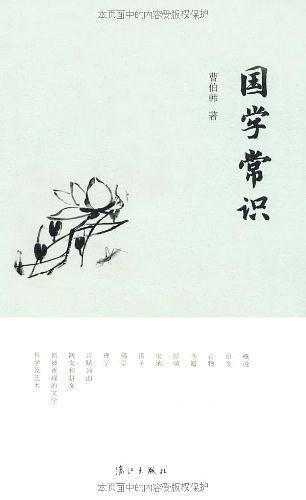 本页面中的内容受版权保护
国学常识
曹伯韩 著
概说
语文
古物
书籍
经学
史地
诸子
佛学
理学
诗赋词曲
散文和骈文
新被重视的文学
科学及艺术
漓江出版社
本页面中的内容受版权保护